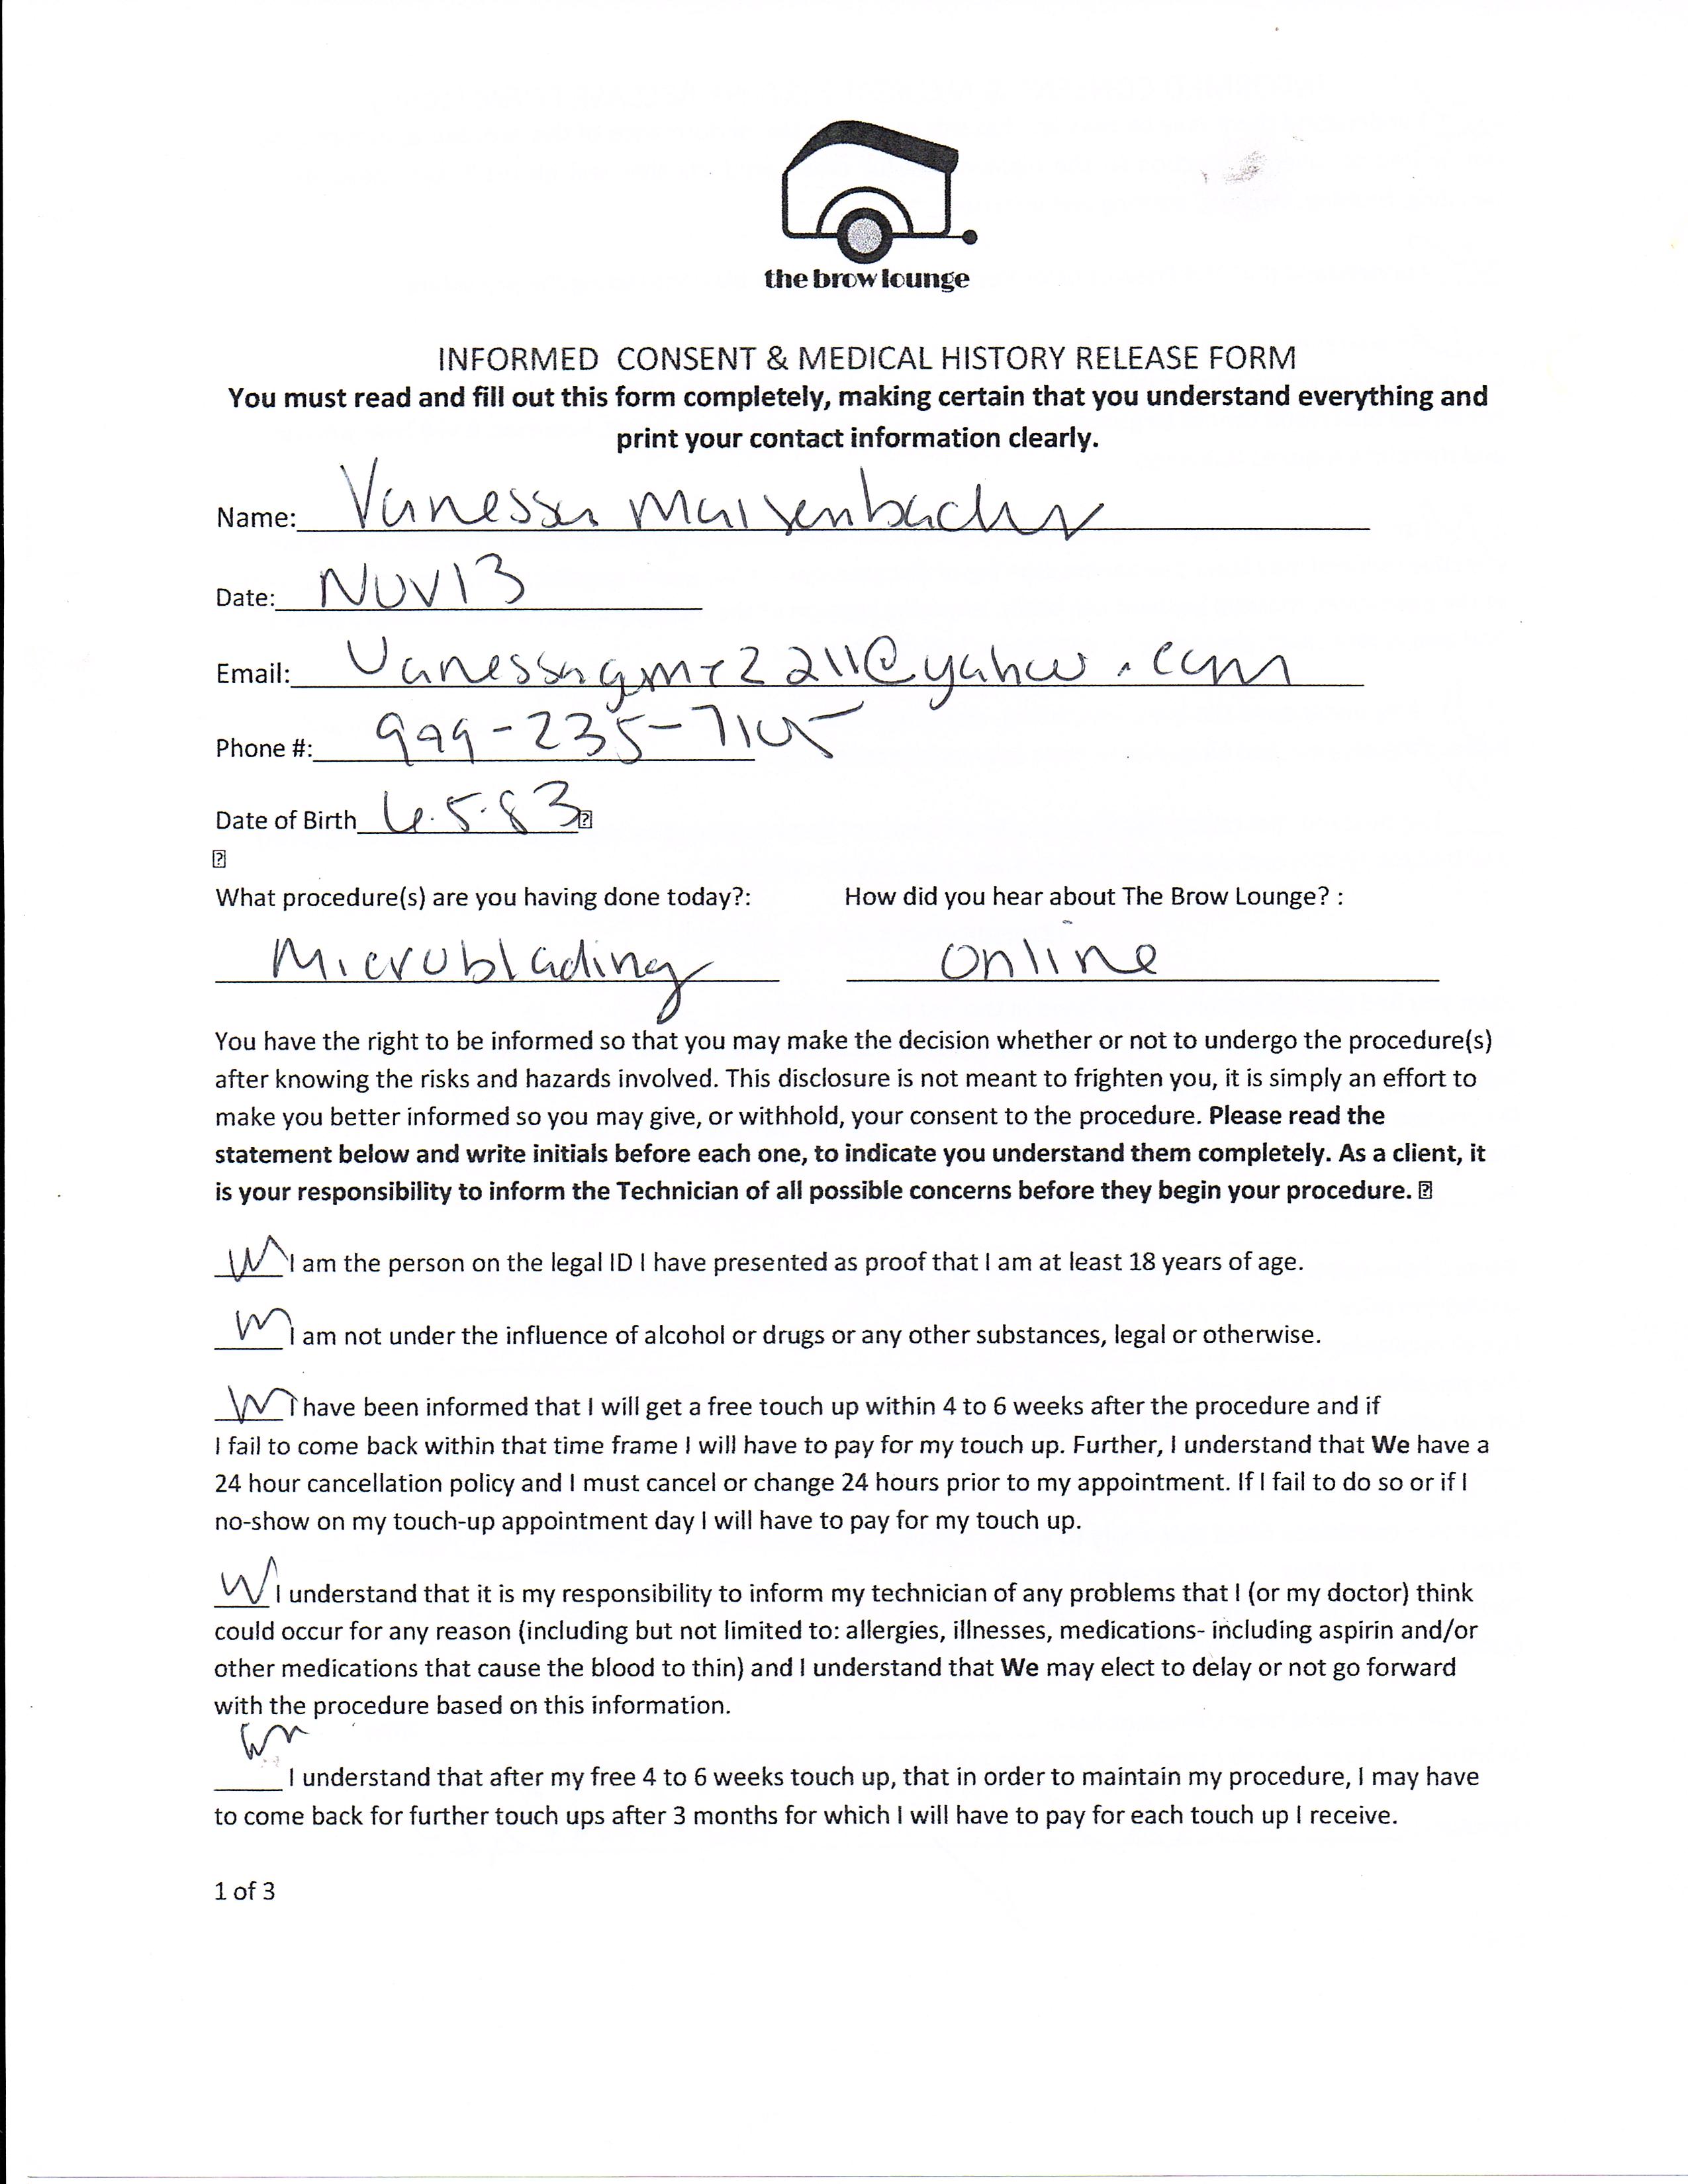 the brow lounge
INFORMED CONSENT & MEDICAL HISTORY RELEASE FORM
You must read and fill out this form completely, making certain that you understand everything and
print your contact information clearly.
Name: Vanessa
Date: NOV 13
Email:
Phone #: 999-235-7105
Date of Birth 6.5.83
What procedure(s) are you having done today?: How did you hear about The Brow Lounge? :
Microblading online
You have the right to be informed so that you may make the decision whether or not to undergo the procedure(s)
after knowing the risks and hazards involved. This disclosure is not meant to frighten you, it is simply an effort to
make you better informed so you may give, or withhold, your consent to the procedure. Please read the
statement below and write initials before each one, to indicate you understand them completely. As a client, it
is your responsibility to inform the Technician of all possible concerns before they begin your procedure.
I am the person on the legal ID I have presented as proof that I am at least 18 years of age.
I am not under the influence of alcohol or drugs or any other substances, legal or otherwise.
I have been informed that I will get a free touch up within 4 to 6 weeks after the procedure and if
I fail to come back within that time frame I will have to pay for my touch up. Further, I understand that We have a
24 hour cancellation policy and I must cancel or change 24 hours prior to my appointment. If I fail to do so or if I
no-show on my touch-up appointment day I will have to pay for my touch up.
I understand that it is my responsibility to inform my technician of any problems that I (or my doctor) think
could occur for any reason (including but not limited to: allergies, illnesses, medications- including aspirin and/or
other medications that cause the blood to thin) and I understand that We may elect to delay or not go forward
with the procedure based on this information.
I understand that after my free 4 to 6 weeks touch up, that in order to maintain my procedure, I may have
to come back for further touch ups after 3 months for which I will have to pay for each touch up I receive.
1 of 3